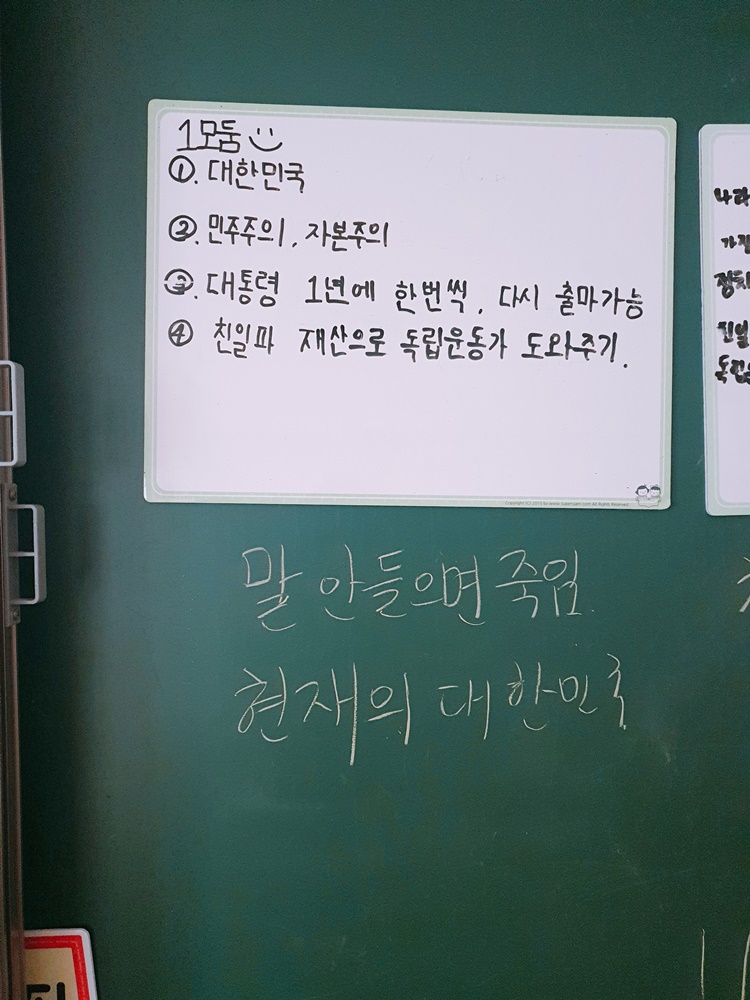 1모둠
①. 대한민국
②. 민주주의, 자본주의
③. 대통령 1년에 한번씩, 다시 출마가능
④ 친일파 재산으로 독립운동가 도와주기.
말 안들으면 죽임
현재의 대한민국
나라
정치
친일
독립